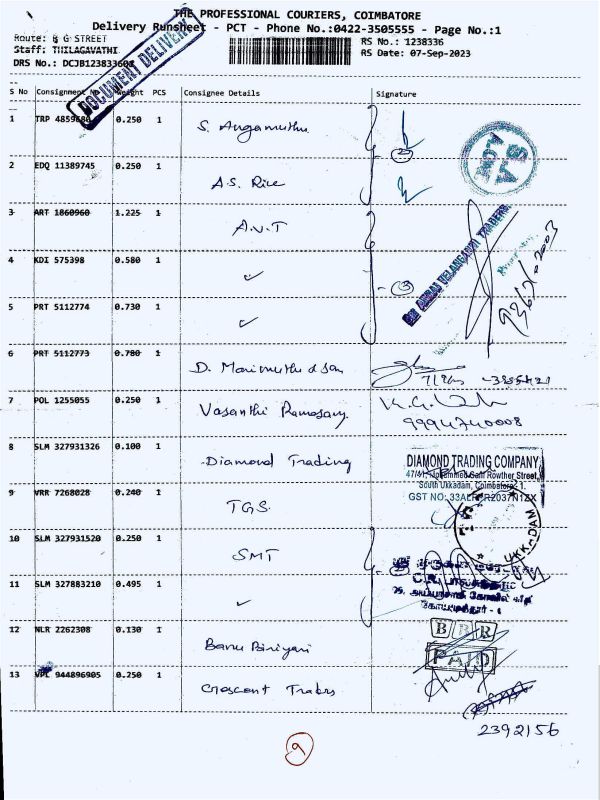 THE PROFESSIONAL COURIERS, COIMBATORE
Delivery Runsheet - PCT - Phone No.:0422-3505555 - Page No.:1
Route: B G STREET
RS No.: 1238336
Staff: THILAGAVATHI
RS Date: 07-Sep-2023
DRS No.: DCJB12383360
DOCUMENT DELIVERY
S No Consignment No Weight PCS Consignee Details Signature
1 TRP 4859680 0.250 1 S. Angamuthu
2 EDQ 11389745 0.250 1 A.S. Rice
2
3 ART 1860960 1.225 1 A.V.T
4 KDI 575398 0.580 1 ✓
3
5 PRT 5112774 0.730 1 ✓
VELANGANNI TRADERS
6 PRT 5112773 0.780 1 D. Marimuthu & Son
7 POL 1255055 0.250 1 Vasanthi Ramasamy
9994740008
8 SLM 327931326 0.100 1 Diamond Trading
DIAMOND TRADING COMPANY
South Ukkadam, Coimbatore - 1.
9 VRR 7268028 0.240 1 TGS
10 SLM 327931520 0.250 1 SMT
UKKADAM
11 SLM 327883210 0.495 1 ✓
12 NLR 2262308 0.130 1 Banu Biriyani
B B R
PAID
13 VPL 944896905 0.250 1 Crescent Traders
2392156
9